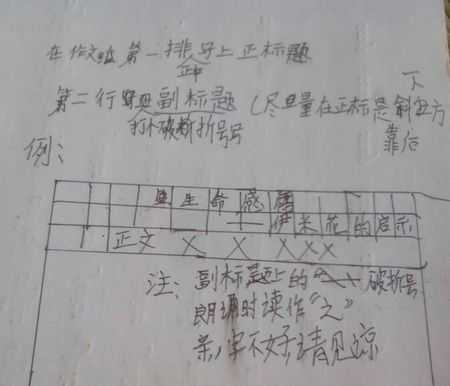 在作文纸第一排写上正标题
正中
第二行写副标题(尽量在正标题斜下方
打破折号
靠后
例:
生命感悟
——伊米花的启示
正文 X X X X X
注:副标题上的“——”破折号
朗诵时读作“之”
亲,字不好,请见谅